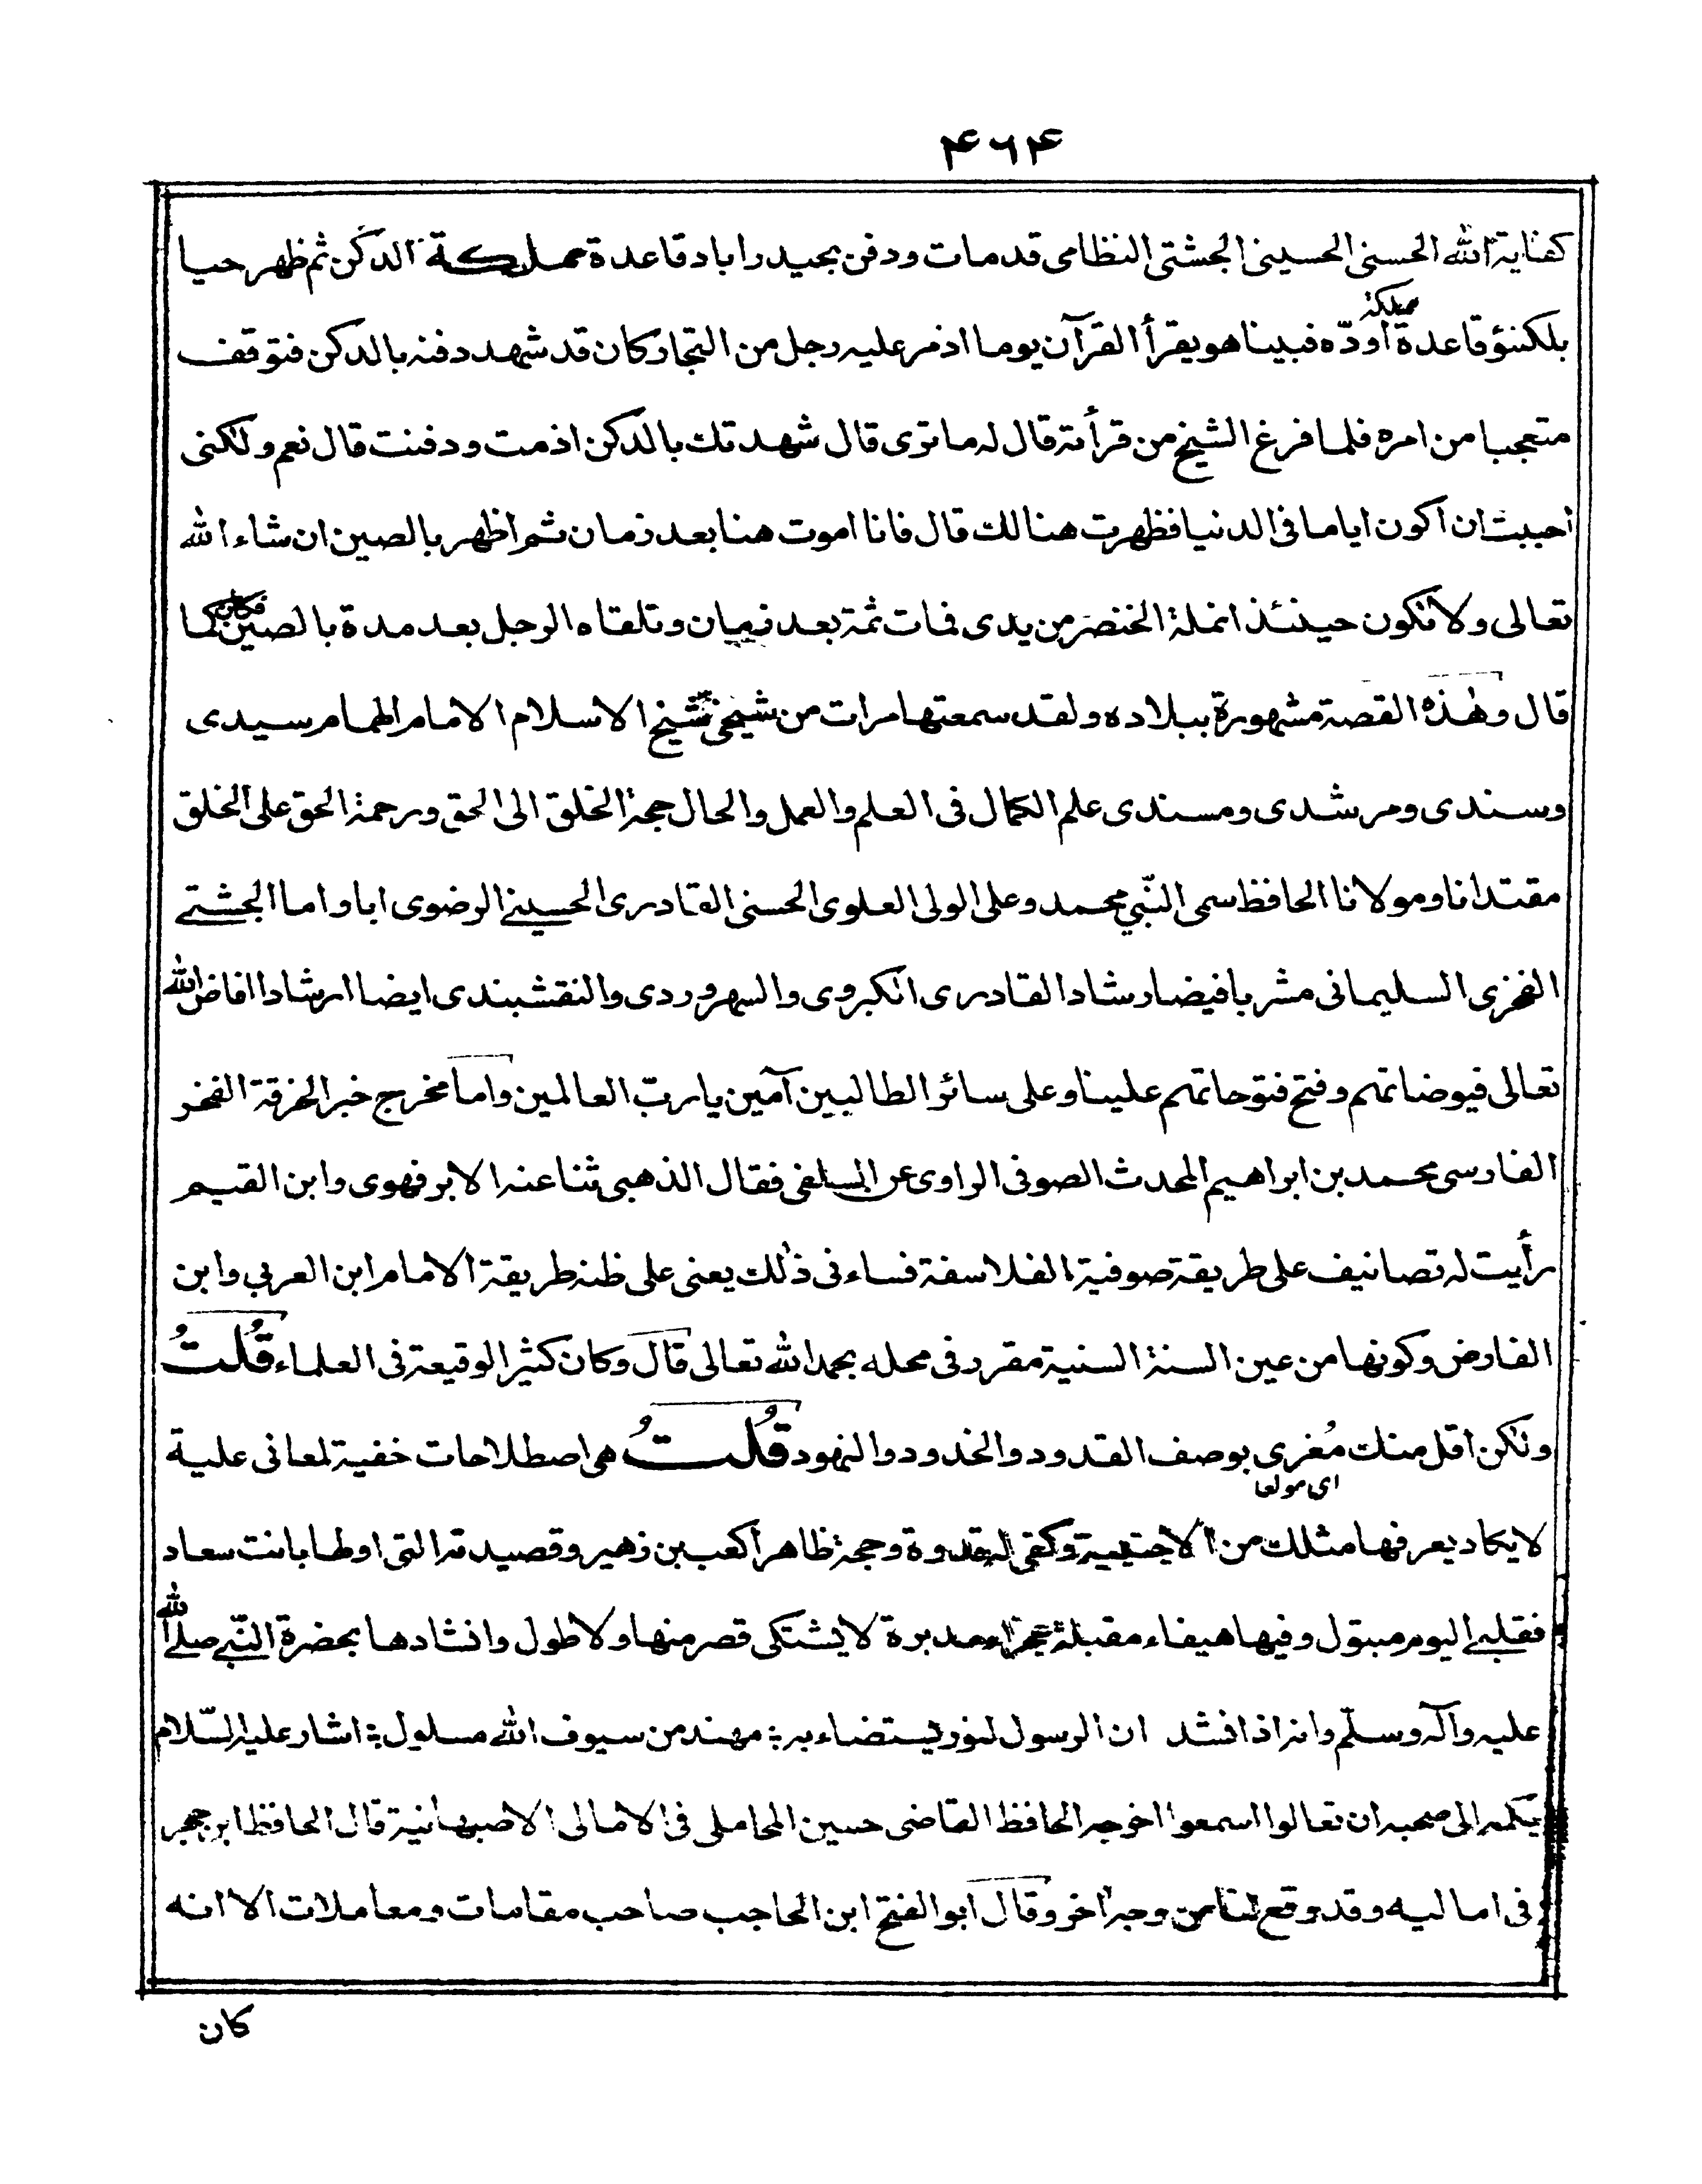 ۴۶۴
كفاية الله الحسنى الحسينى الچشتى النظامى قد مات ودفن بحيدراباد قاعدة مملكة الدكن ثم ظهر حيا
بلكنؤ قاعدة مملكة اودّه فبينا هو يقرأ القرآن يوما اذ مر عليه رجل من التجار كان قد شهد دفنه بالدكن فتوقف
متعجبا من امره فلما فرغ الشيخ من قرأته قال له ما ترى قال شهدتك بالدكن اذ مت ودفنت قال نعم ولكنى
احببت ان اكون اياما فى الدنيا فظهرت هنالك قال فانا اموت هنا بعد زمان ثم اظهر بالصين ان شاء الله
تعالى ولا تكون حينئذ انملة الخنصر من يدى فمات ثمة بعد زمان وتلقاه الرجل بعد مدة بالصين فكان كما
قال وهذه القصة مشهورة ببلاده ولقد سمعتها مرات من شيخى شيخ الاسلام الامام الهمام سيدى
وسندى ومرشدى ومسندى علم الكمال فى العلم والعمل والحال حجة الخلق الى الحق ورحمة الحق على الخلق
مقتدانا ومولانا الحافظ سمى النّبي محمد وعلى الولى العلوى الحسنى القادرى الحسينے الرضوى ابا واما الچشتے
الفخرى السليمانى مشربا فيضا رشاد القادرى الكبروى والسهروردى والنقشبندى ايضا ارشادا افاض الله
تعالى فيوضاتهم وفتح فتوحاتهم علينا وعلى سائر الطالبين آمين يا ربّ العالمين واما مخرج خبر الخرقة الفخر
الفارسى محمد بن ابراهيم المحدث الصوفى الراوى عن السلفى فقال الذهبى ثنا عنه الابرقهوى وابن القيم
رأيت له تصانيف على طريقة صوفية الفلاسفة فساء فى ذلك يعنى على ظنه طريقة الامام ابن العربي وابن
الفارض وكونها من عين السنة السنية مقرر فى محله بحمد الله تعالى قال وكان كثير الوقيعة فى العلماء قُلتُ
ولكن اقل منك مُغرى بوصف القدود والخدود والنهود قُلتُ هى اصطلاحات خفية لمعانى علية
اى مولعا
لا يكاد يعرفها مثلك من الاجنبية وكفى له قدوة وحجة ظاهرا كعب بن زهير وقصيدته التى اولها بانت سعاد
فقلبے اليوم مبتول وفيها هيفاء مقبلة عجزاء مدبرة لا يشتكى قصر منها ولا طول وانشادها بحضرة النّبے صلے الله
عليه وآله وسلّم وانه اذا انشد ان الرسول لنور يستضاء به ؞ مهند من سيوف الله مسلول ؞ اشار عليه السّلام
بكمه الى صحبه ان تعالوا اسمعوا اخرجه الحافظ القاضى حسين المحاملى فى الامالى الاصبهانية قال الحافظ ابن حجر
فى اماليه وقد وقع لنا من وجه اخر وقال ابو الفتح ابن الحاجب صاحب مقامات ومعاملات الا انه
كان